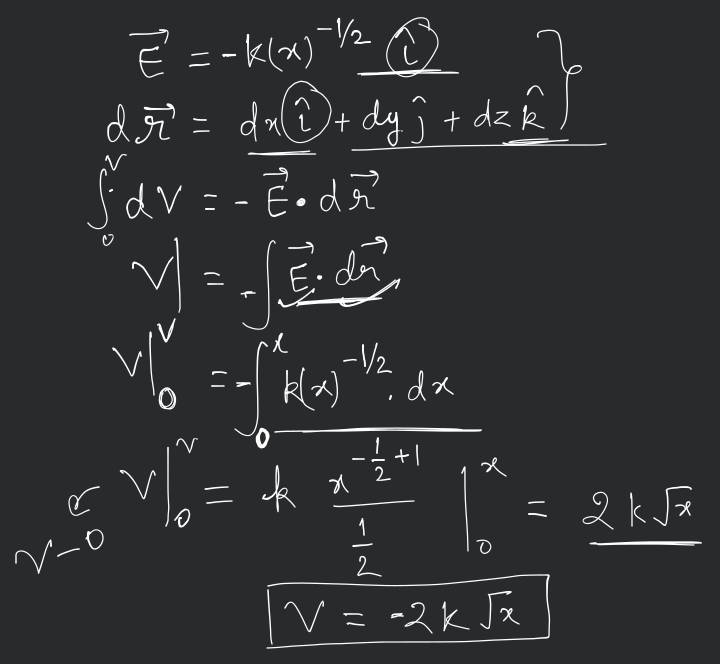 E⃗ = -k(x)^{-1/2} î
dr⃗ = dx î + dy ĵ + dz k̂ }
∫₀^V dV = - E⃗ · dr⃗
V| = -∫ E⃗ · dr⃗
V|₀^V = -∫₀^x k(x)^{-1/2} . dx
V|₀^V = k x^{-1/2+1} / (1/2) |₀^x = 2k√x
V-0
V = -2k√x